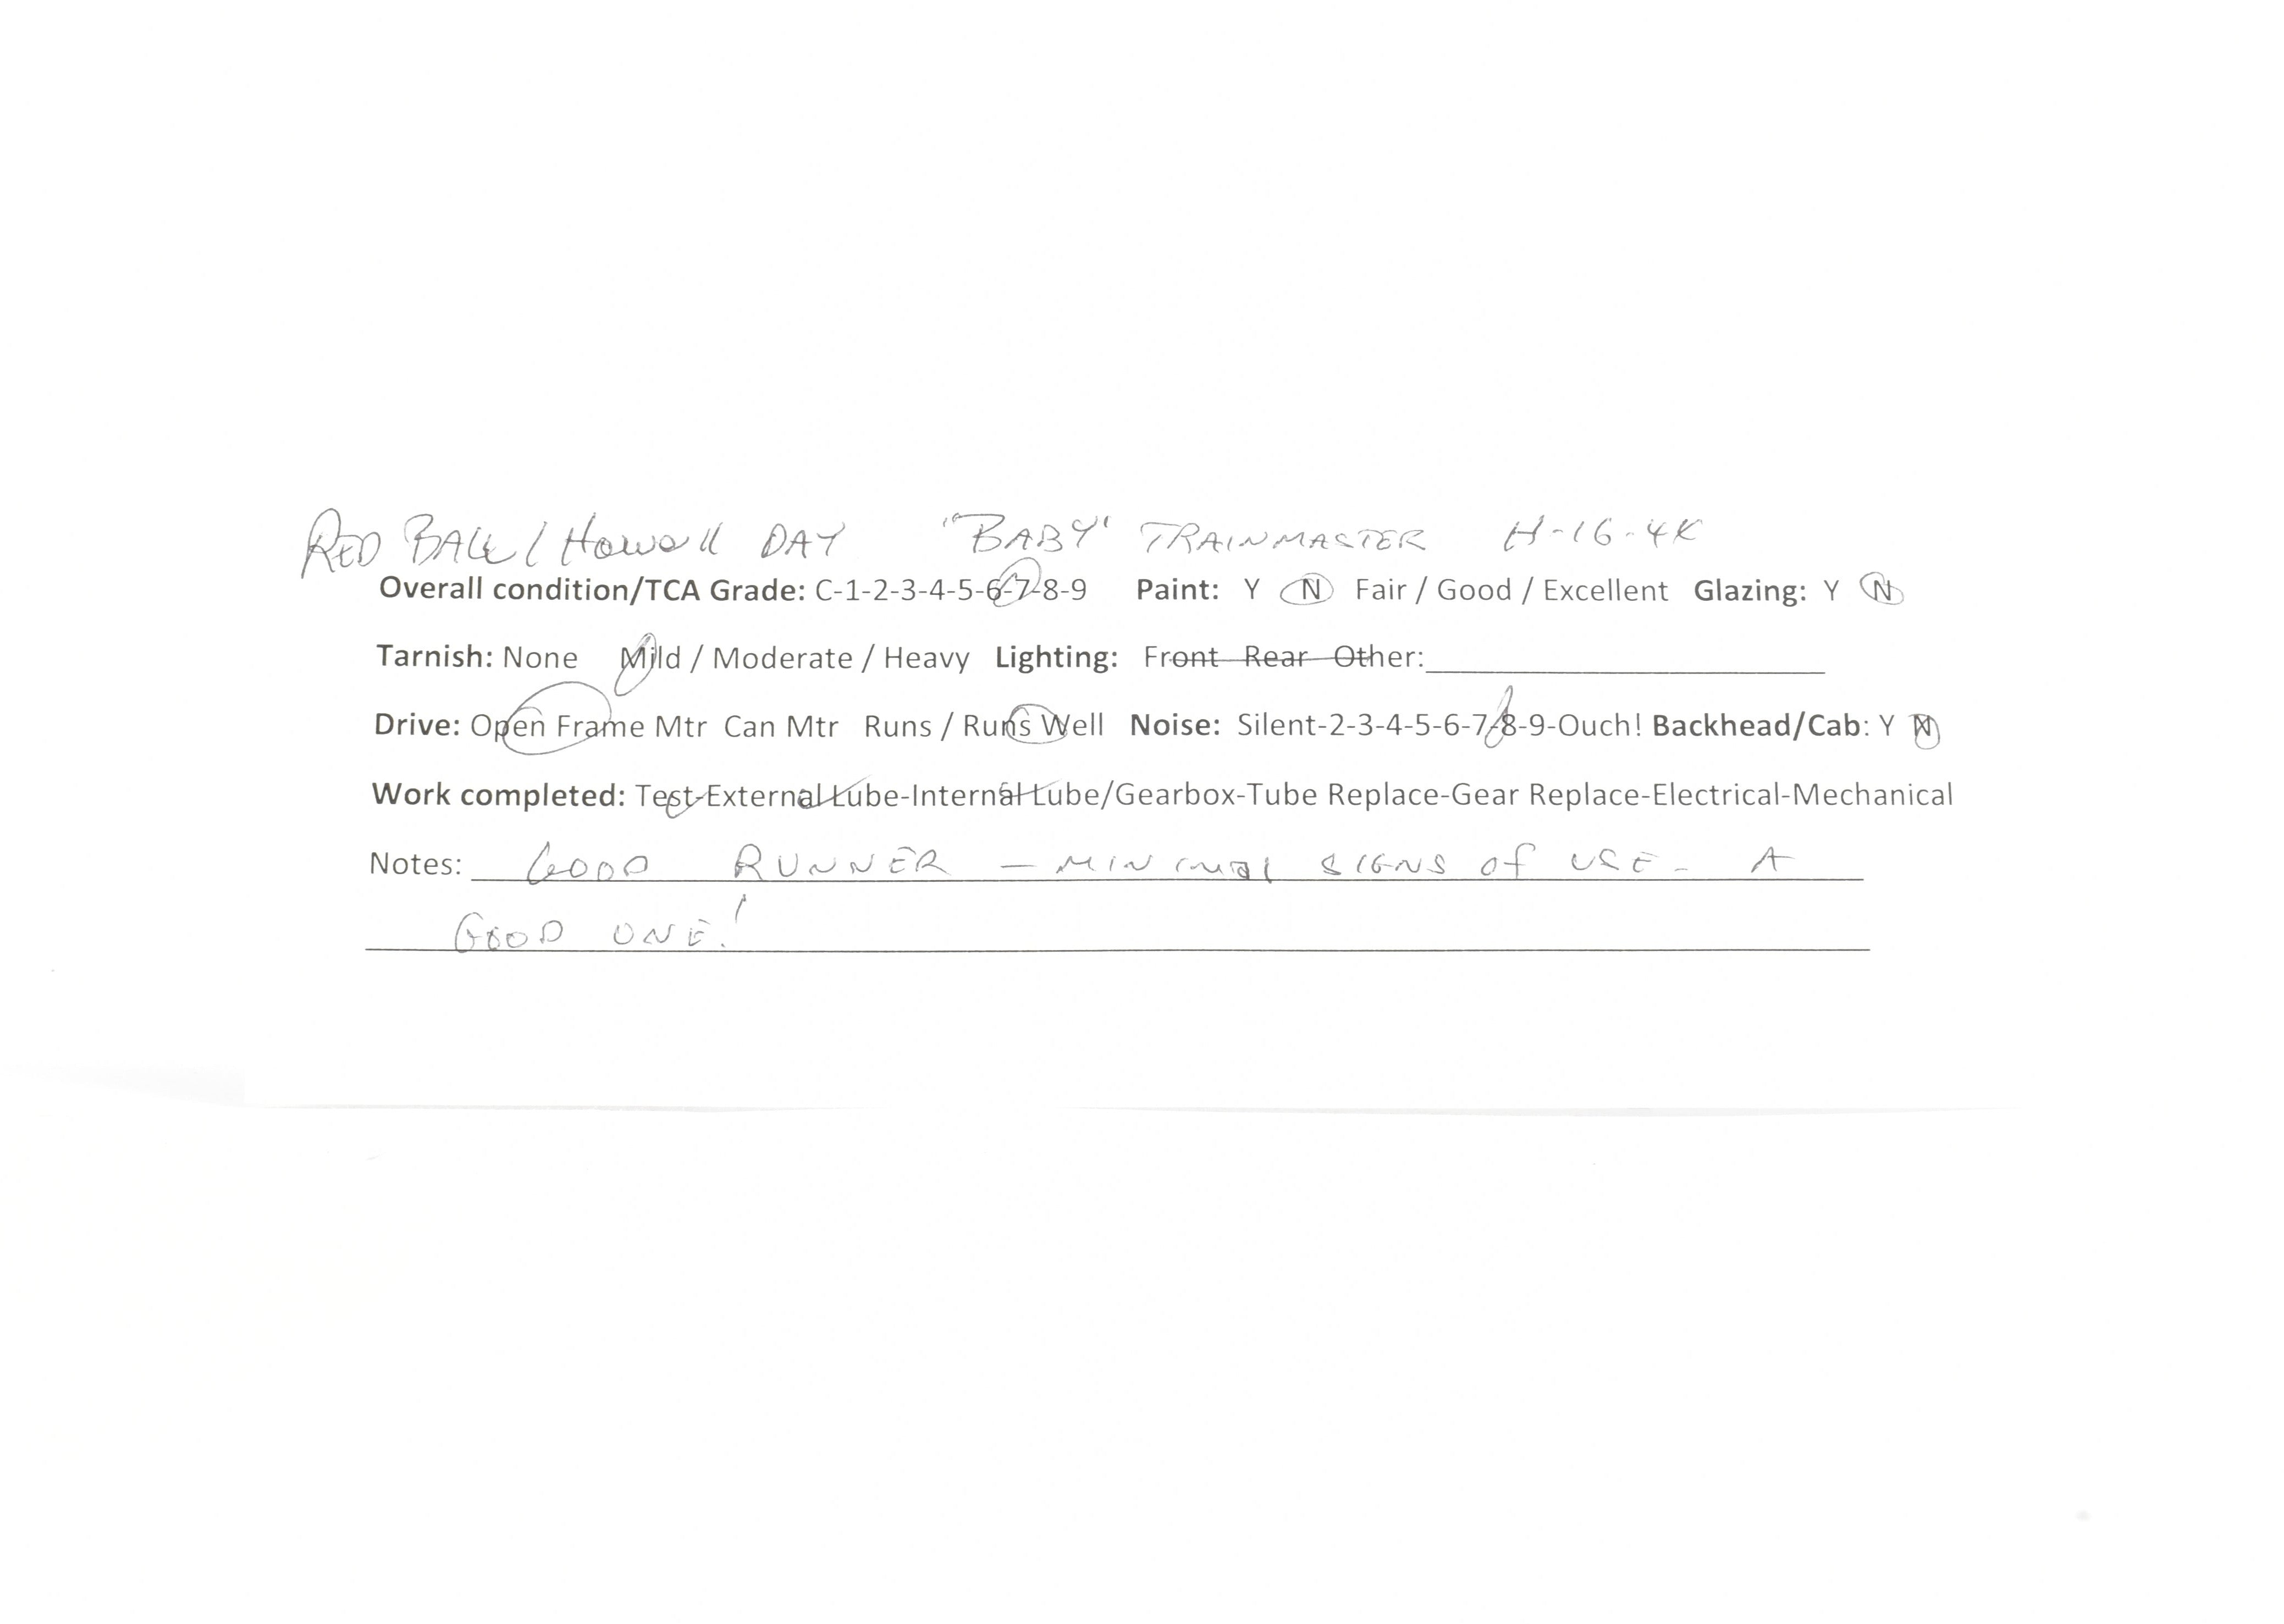 RED BALL / Howell DAY "BABY" TRAINMASTER H-16-44
Overall condition/TCA Grade: C-1-2-3-4-5-6-7-8-9 Paint: Y N Fair / Good / Excellent Glazing: Y N
Tarnish: None Mild / Moderate / Heavy Lighting: Front Rear Other:
Drive: Open Frame Mtr Can Mtr Runs / Runs Well Noise: Silent-2-3-4-5-6-7-8-9-Ouch! Backhead/Cab: Y N
Work completed: Test-External Lube-Internal Lube/Gearbox-Tube Replace-Gear Replace-Electrical-Mechanical
Notes: GOOD RUNNER - MINIMAL SIGNS OF USE - A
GOOD ONE!